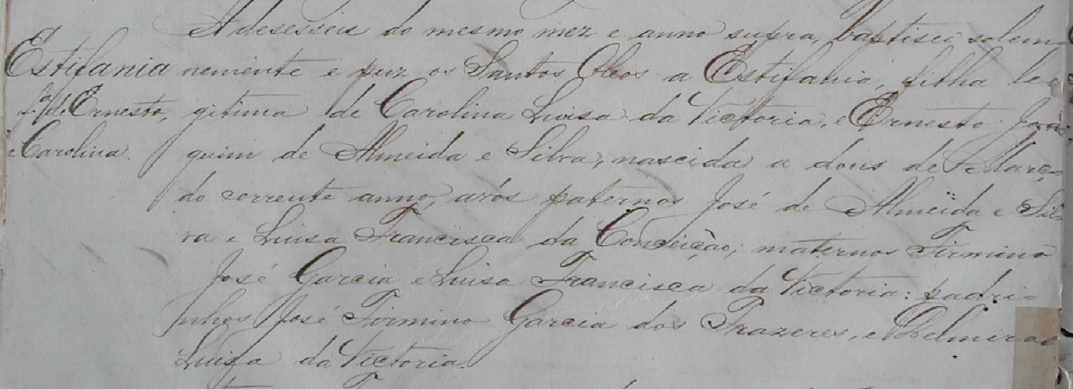 A desesseis do mesmo mez e anno supra, baptisei solem-
Estifania nemente e puz os Santos Oleos a Estifania, filha le-
f. l. d. Ernesto, gitima de Carolina Luisa da Victoria, e Ernesto Joa-
e Carolina. quim de Almeida e Silva, nascida a dous de Março
do corrente anno, avós paternos José de Almeida e Sil-
va e Luisa Francisca da Conceição; maternos Firmino
José Garcia e Luisa Francisca da Victoria: padri-
nhos José Firmino Garcia dos Prazeres, e Belmira
Luisa da Victoria.